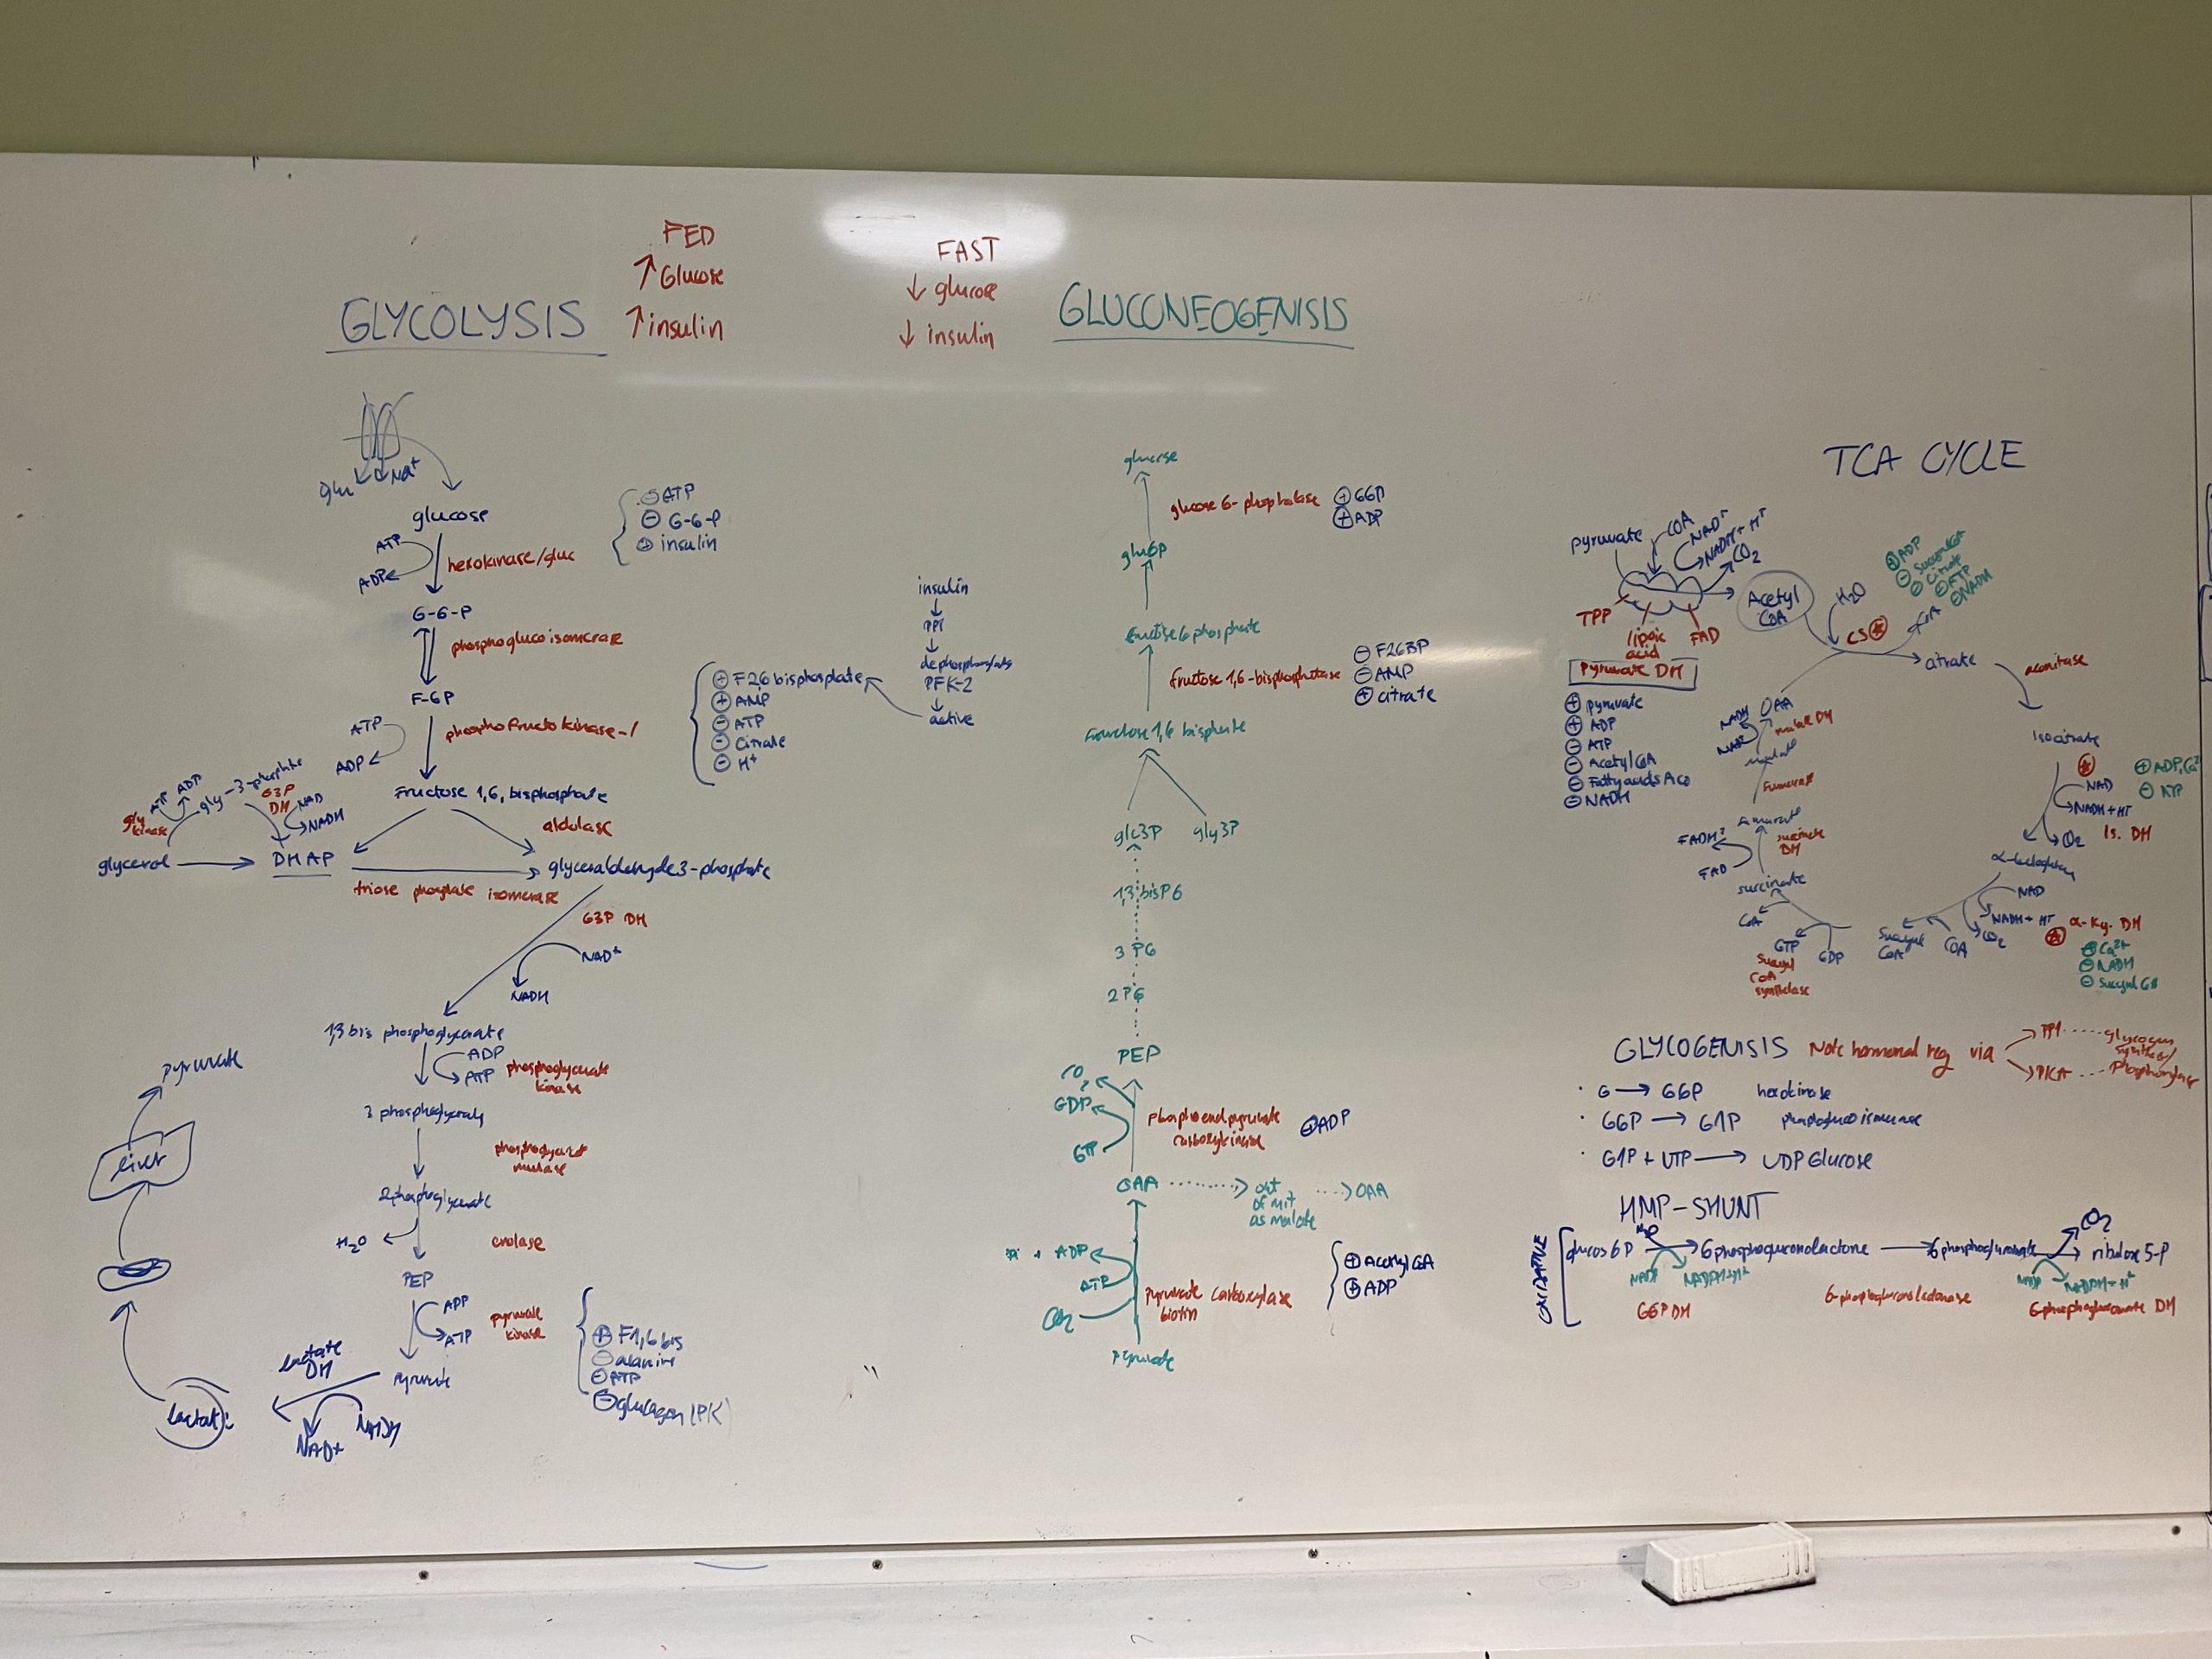 FED
↑ Glucose
↑ insulin
FAST
↓ glucose
↓ insulin
GLYCOLYSIS
glu Na+
glucose
ATP
ADP
hexokinase/gluc
⊖ ATP
⊖ G-6-P
⊕ insulin
G-6-P
phosphoglucoisomerase
F-6P
ATP
ADP
phosphofructokinase-1
⊕ F2,6 bisphosphate
⊕ AMP
⊖ ATP
⊖ Citrate
⊖ H+
insulin
PP1
PFK-2
active
Fructose 1,6, bisphosphate
aldolase
gly kinase
ATP ADP
gly-3-phosphate
G3P DH
NAD
NADH
glycerol
DHAP
glyceraldehyde 3-phosphate
triose phosphate isomerase
G3P DH
NAD+
NADH
1,3 bis phosphoglycerate
ADP
ATP
phosphoglycerate
kinase
3 phosphoglycerate
phosphoglycerate
mutase
2phosphoglycerate
H2O
enolase
PEP
ADP
ATP
pyruvate
kinase
⊕ F1,6 bis
⊖ alanine
⊖ ATP
⊖ glucagon (PK)
pyruvate
lactate
DH
NADH
NAD+
lactate
liver
pyruvate
GLUCONEOGENISIS
glucose
glucose 6-phosphatase
⊕ G6P
⊕ ADP
glu6P
fructose 6 phosphate
fructose 1,6-bisphosphatase
⊖ F26BP
⊖ AMP
⊕ citrate
Fructose 1,6 bisphate
glc3P gly3P
1,3 bisPG
3 PG
2 PG
PEP
CO2
GDP
GTP
carboxykinase
⊕ADP
OAA
out
of mit
as malate
OAA
Pi + ADP
ATP
CO2
pyruvate carboxylase
biotin
⊕ Acetyl CoA
⊕ ADP
Pyruvate
TCA CYCLE
pyruvate
COA
NAD+
NADH + H+
CO2
TPP
lipoic
acid
FAD
Pyruvate DH
⊕ pyruvate
⊕ ADP
⊖ ATP
⊖ Acetyl CoA
⊖ NADH
Acetyl
CoA
H2O
CS
CoA
⊕ ADP
⊖ Succinyl CoA
⊖ Citrate
⊖ ATP
⊖ NADH
citrate
aconitase
Isocitrate
NAD
NADH + H+
Is. DH
⊕ ADP, Ca2+
⊖ ATP
NAD
NADH + H+
CO2
α-Kg. DH
⊕ Ca2+
⊖ NADH
⊖ Succinyl CoA
COA
Succinyl
CoA
GTP
GDP
Succinyl
CoA
synthetase
CoA
succinate
FAD
succinate
DH
fumarate
fumarase
malate
malate DH
NADH
OAA
GLYCOGENISIS Note hormonal reg via
PP1
glycogen
synthase/
PKA
phosphorylase
· G → G6P hexokinase
· G6P → G1P phosphoglucoisomerase
· G1P + UTP → UDP Glucose
HMP-SHUNT
OXIDATIVE
glucos 6P
H2O
6phosphogluconolactone
6phosphogluconate
CO2
ribulose 5-P
NADP
NADPH+H+
NADP
NADPH + H+
G6P DH
6-phosphogluconolactonase
6-phosphogluconate DH